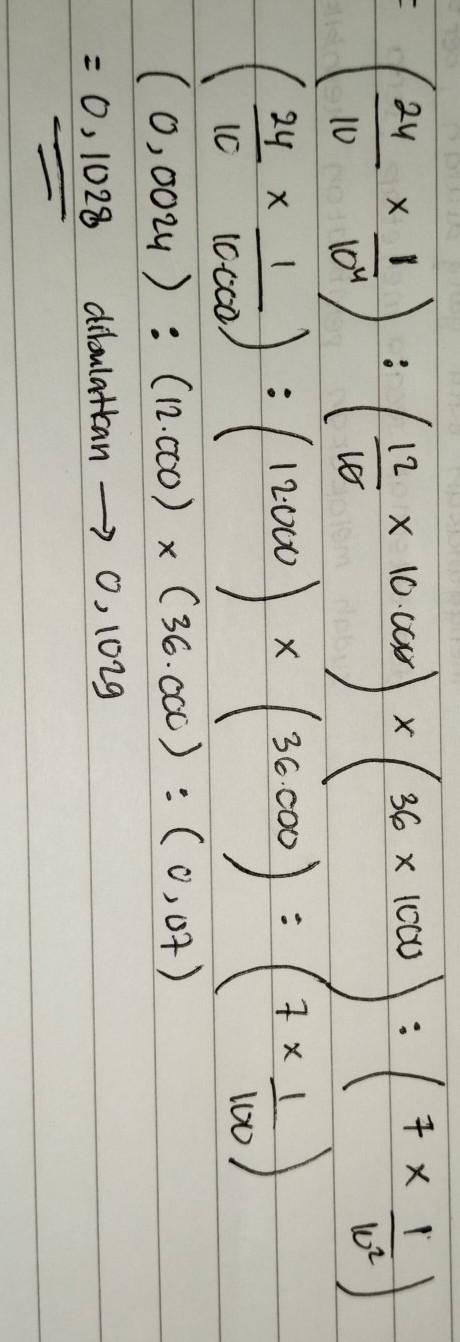 = (24/10 × 1/10⁴) : (12/10 × 10.000) × (36 × 1000) : (7 × 1/10²)
(24/10 × 1/10.000) : (12.000) × (36.000) : (7 × 1/100)
(0,0024) : (12.000) × (36.000) : (0,07)
= 0,1028 dibulatkan → 0,1029